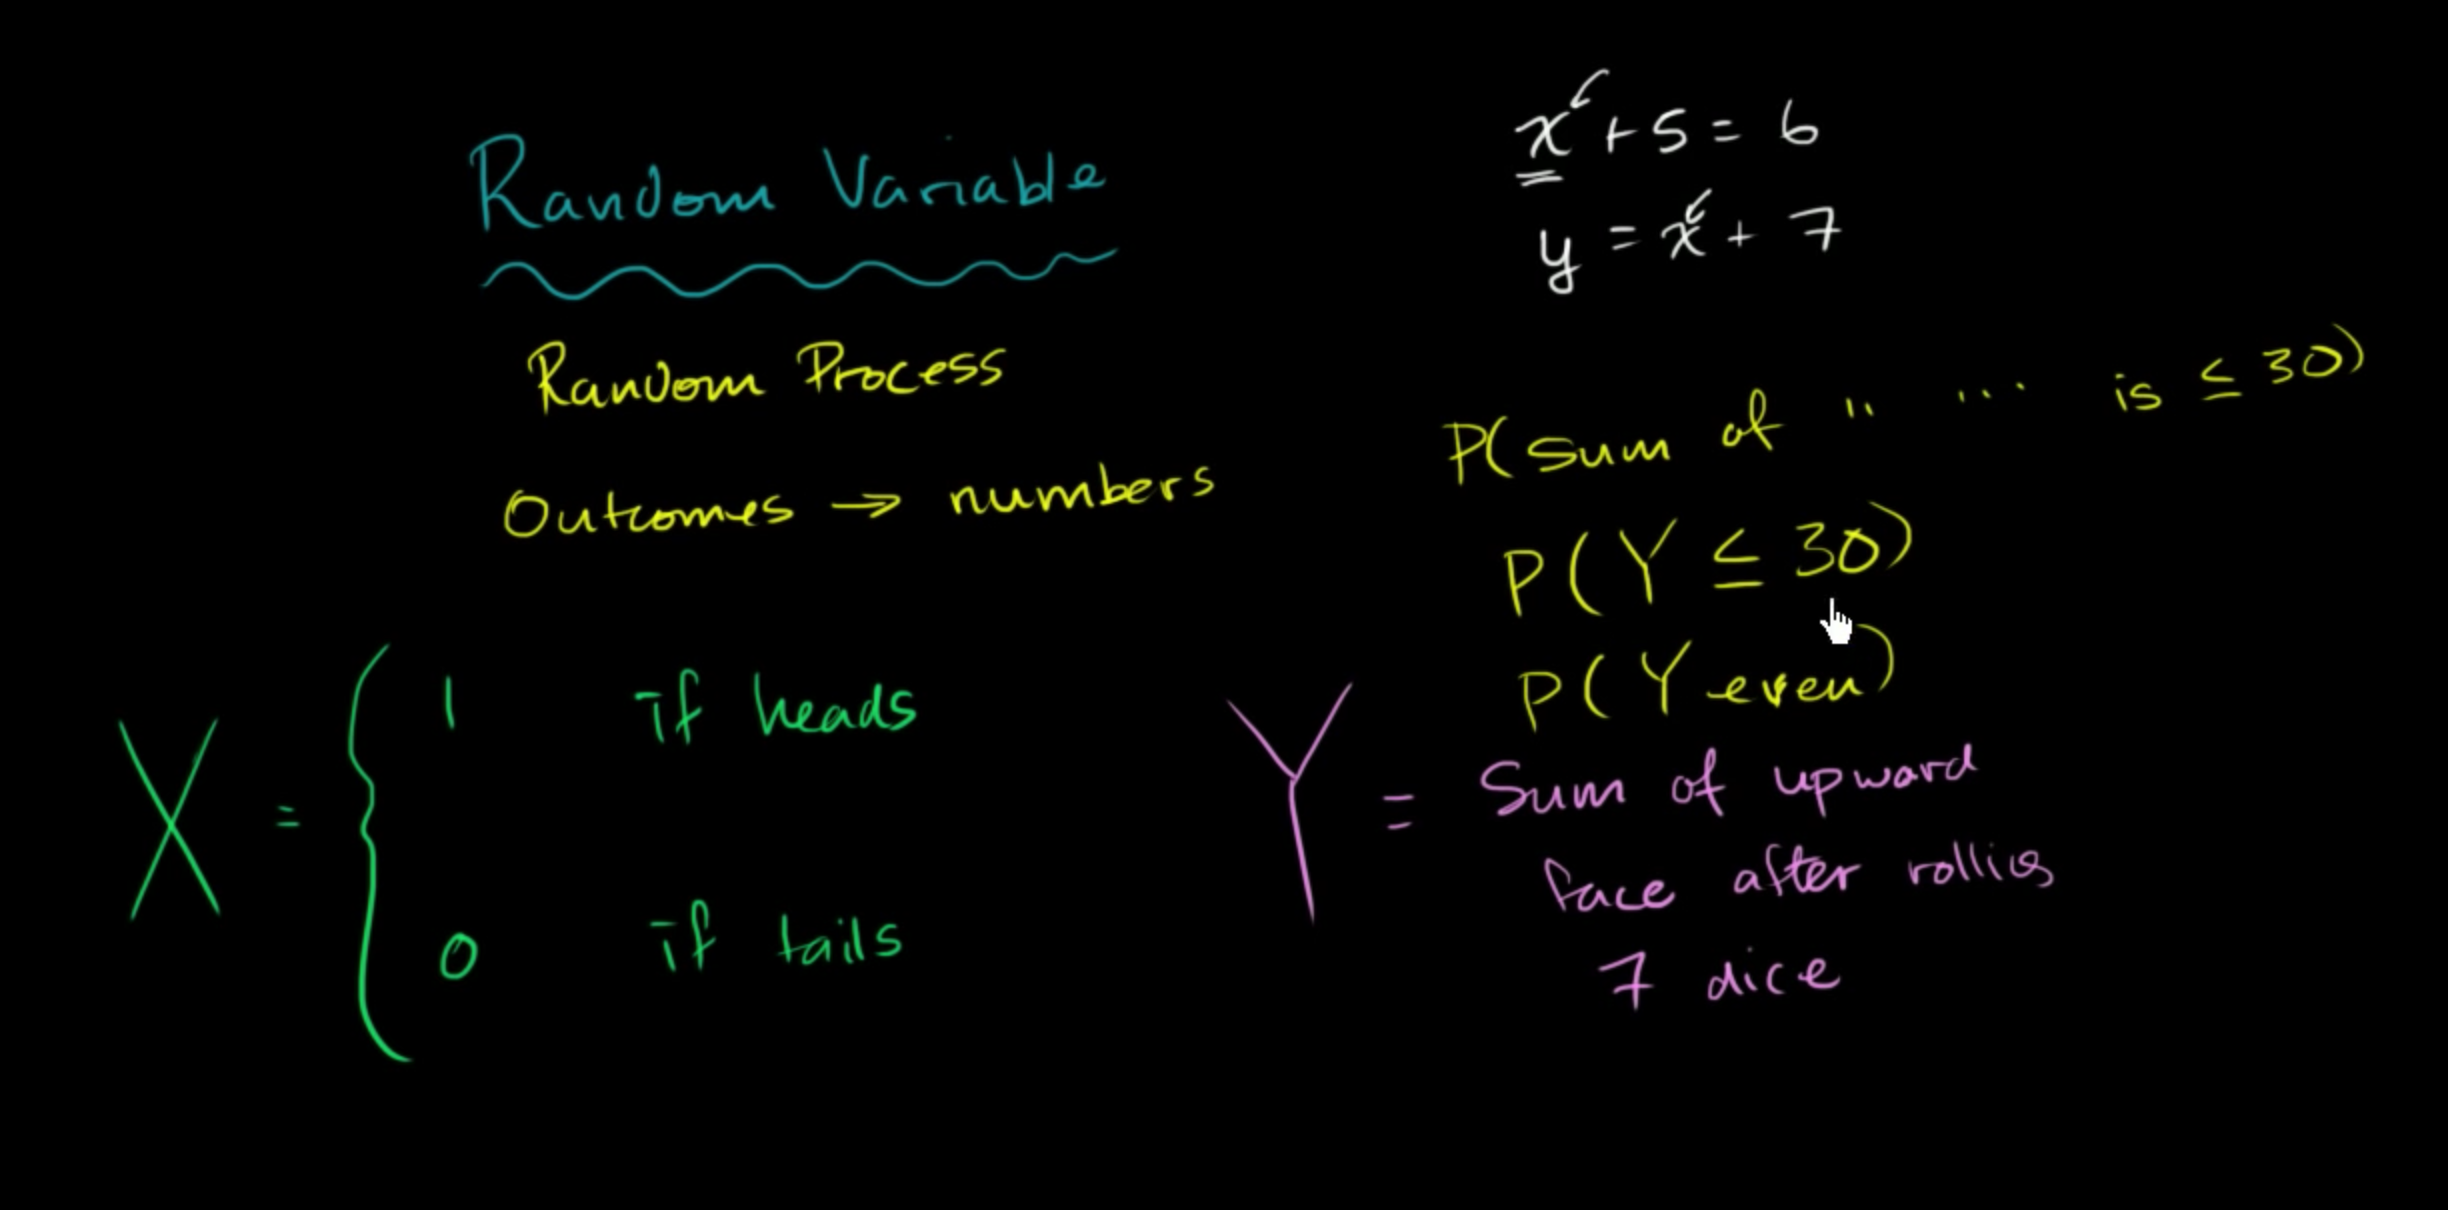 Random Variable
Random Process
Outcomes → numbers
X = { 1 if heads
0 if tails
x + 5 = 6
y = x + 7
P(sum of " ... is ≤ 30)
P(Y ≤ 30)
P(Y even)
Y = Sum of upward
face after rolling
7 dice